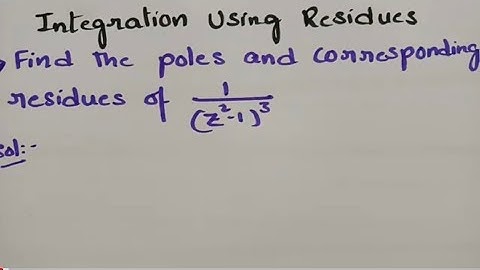 Integration Using Residues
Find the poles and corresponding
residues of 1/(z²-1)³
sol:-